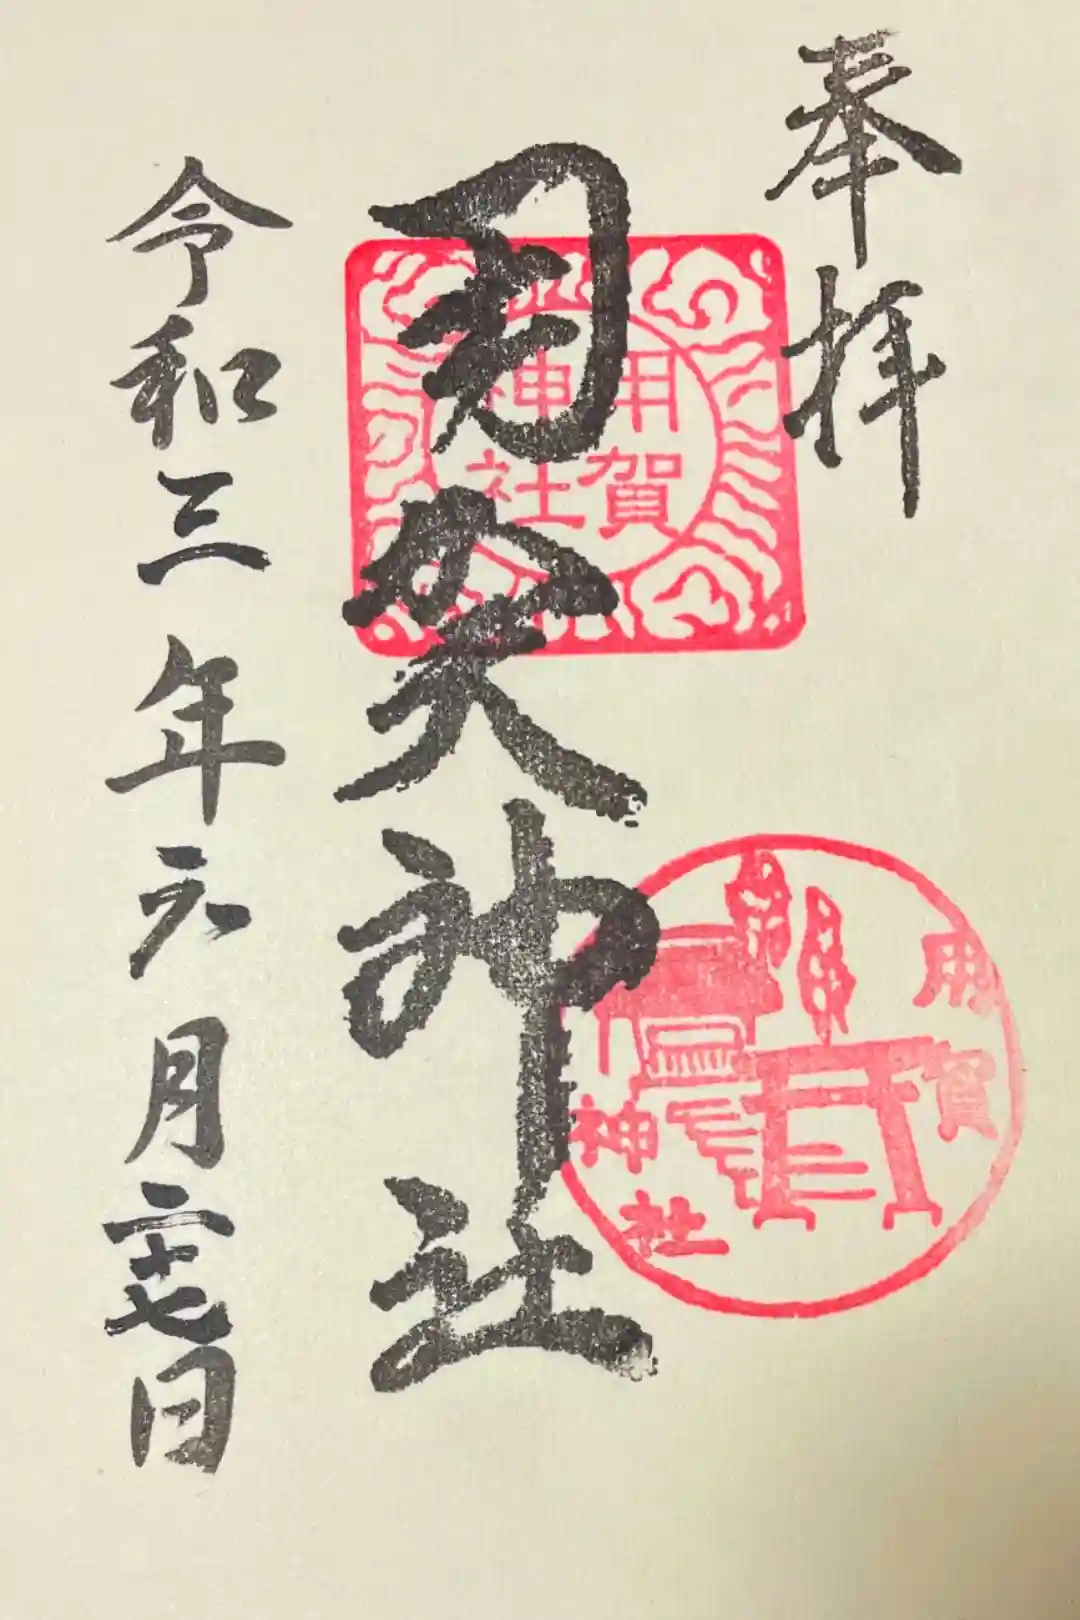 奉拝
用賀神社
用賀神社
用賀神社
令和三年六月二十七日